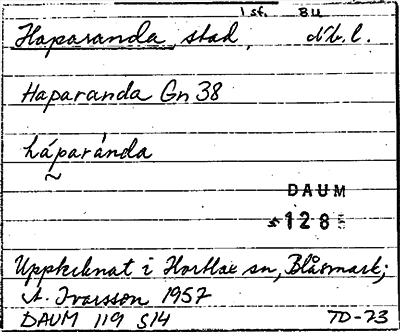 1 sf. BU
Haparanda, stad, d:b. l.
Haparanda Gn 38
háparànda
~
DAUM
1285
Upptecknat i Hortlax sn, Blåsmark;
A. Ivarsson 1957
DAUM 119 S14 TD-73